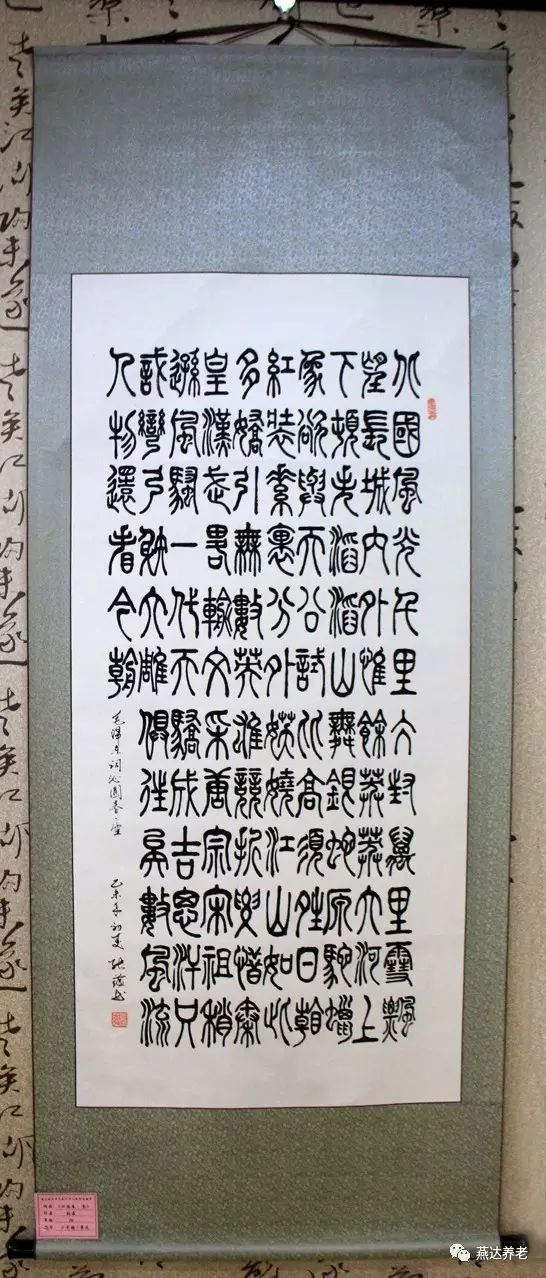 北國風光千里冰封萬里雪飄
望長城內外惟餘莽莽大河上
下頓失滔滔山舞銀蛇原馳蠟
象欲與天公試比高須晴日看
紅裝素裹分外妖嬈江山如此
多嬌引無數英雄競折腰惜秦
皇漢武略輸文采唐宗宋祖稍
遜風騷一代天驕成吉思汗只
識彎弓射大雕俱往矣數風流
人物還看今朝
毛澤東詞沁園春雪 乙未年初夏
燕达养老